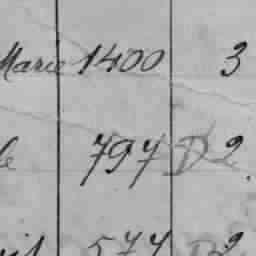 Marie 1400 3
797 D 2
574 D 2